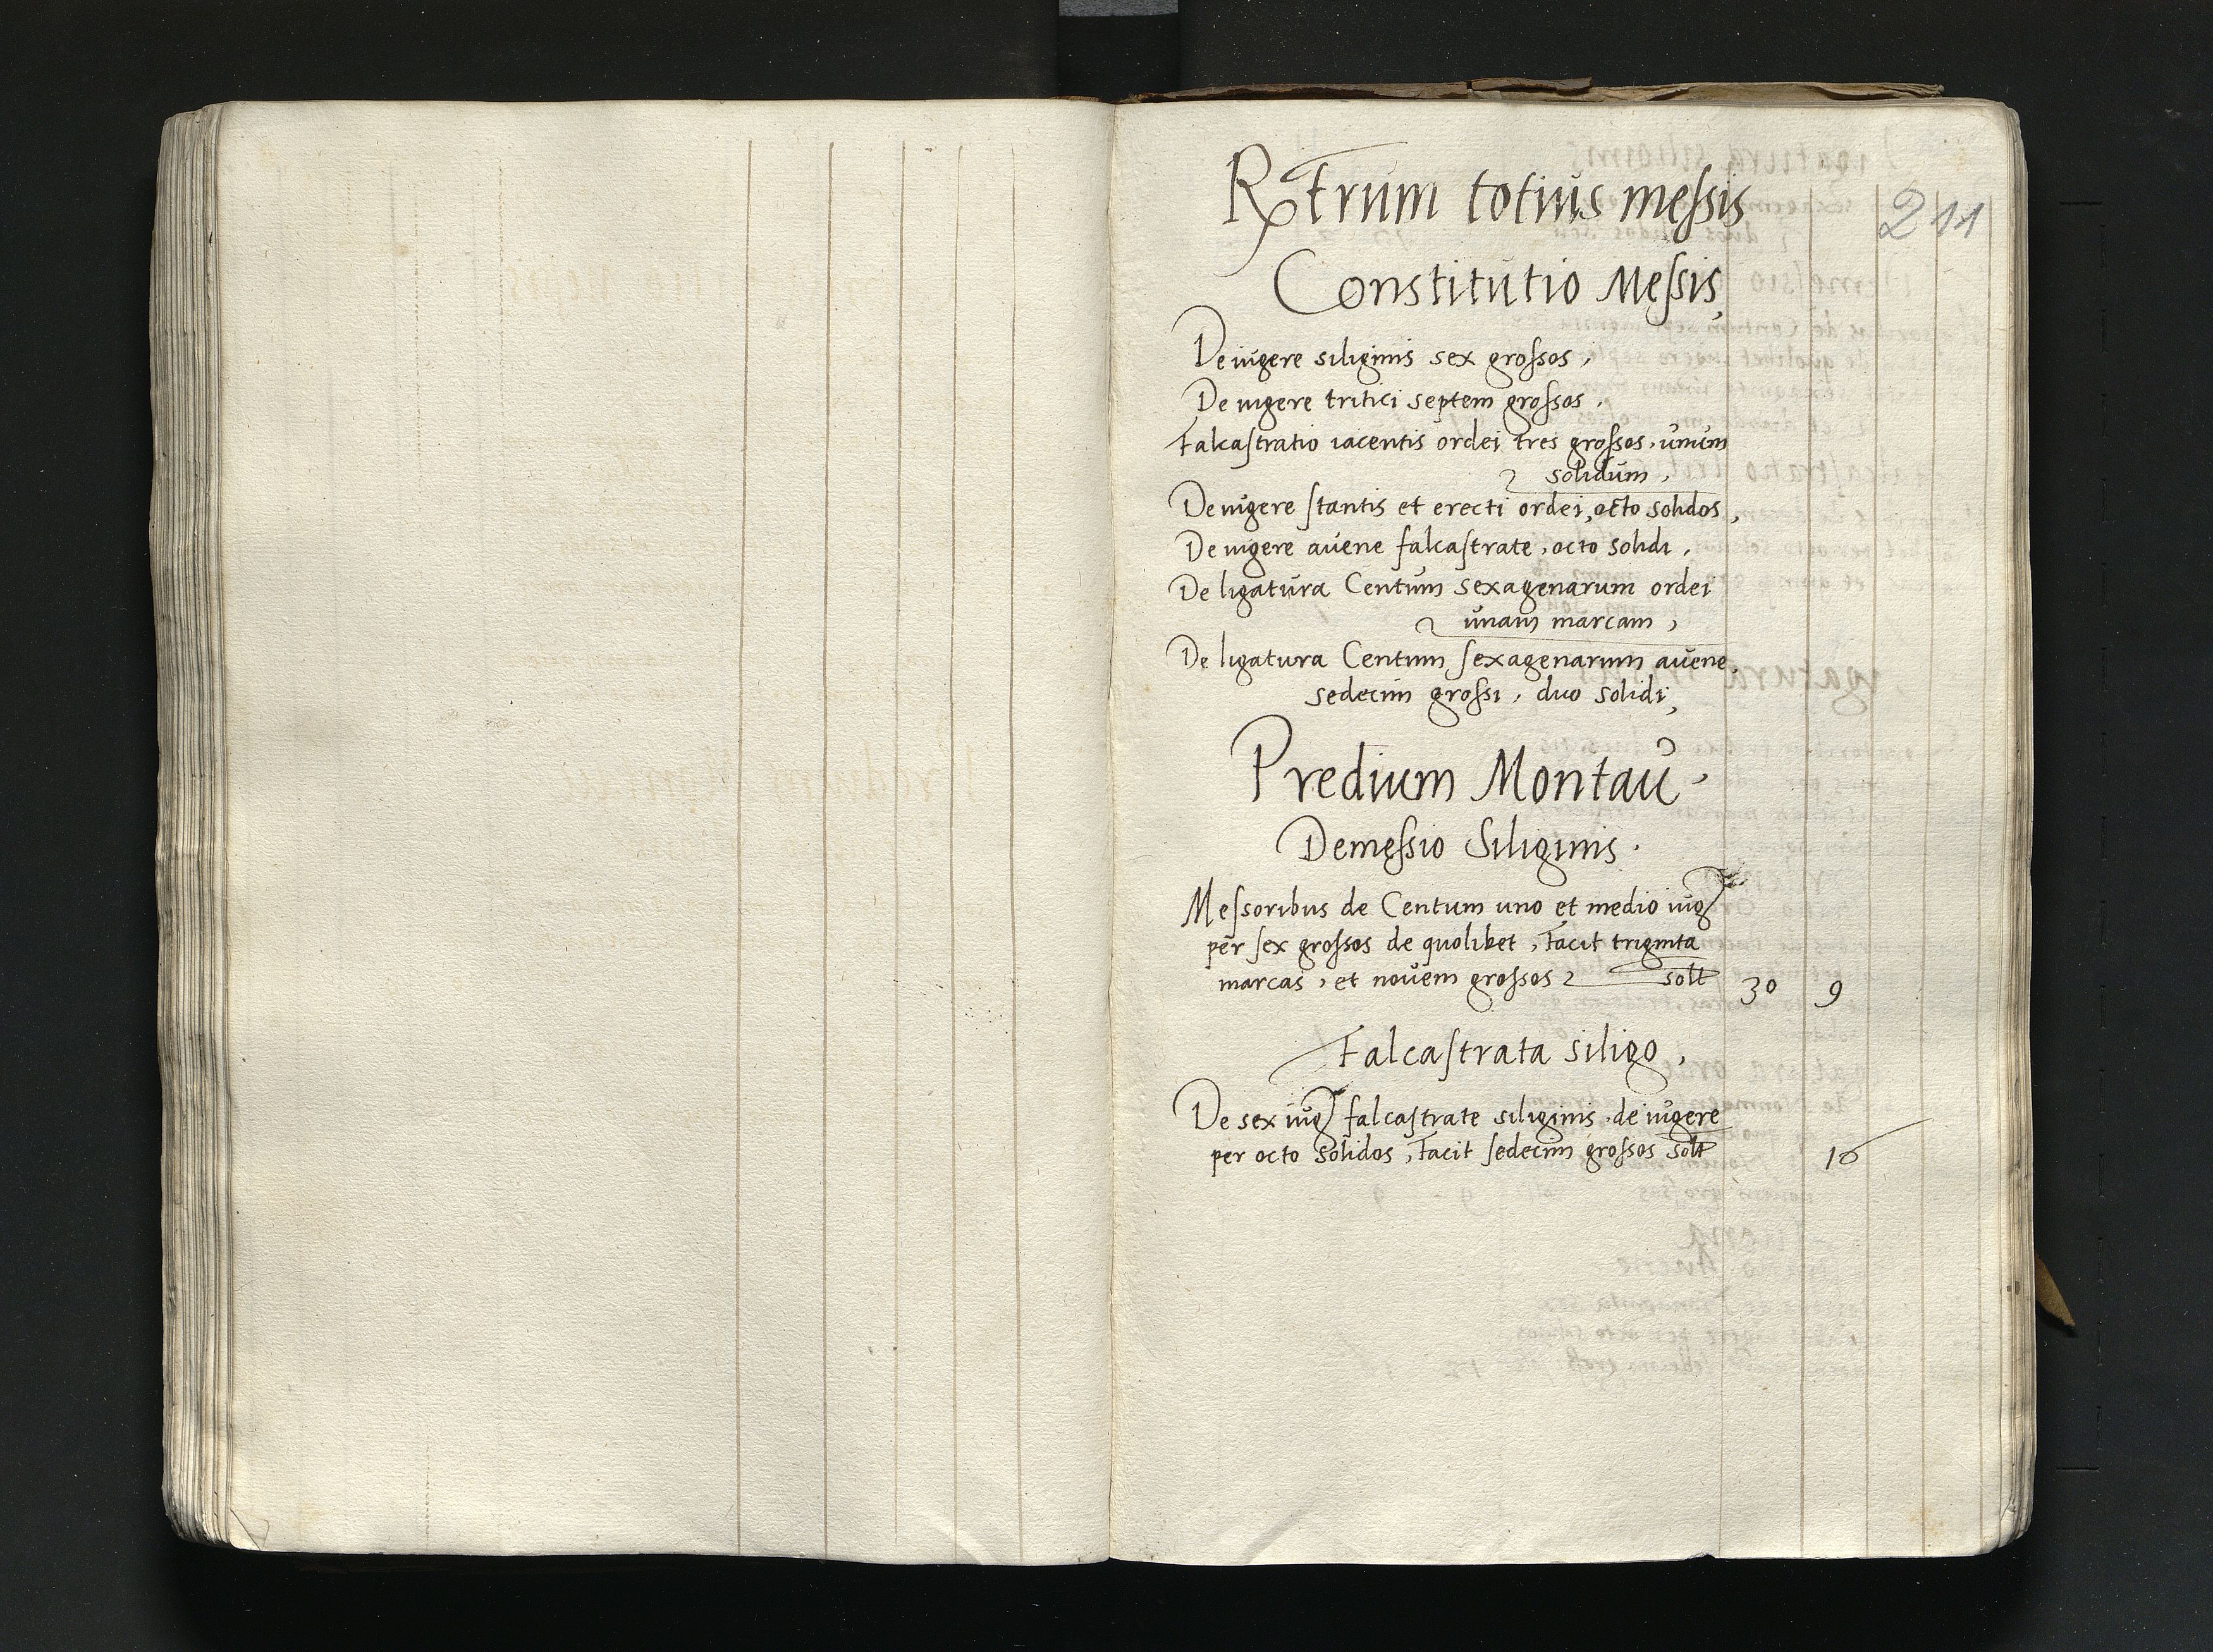 Rxtrum totius messis
211
Constitutio Messis
De iugere siliginis sex grossos,
De iugere tritici septem grossos.
Falcastratio iacentis ordei tres grossos, unum
solidum,
De iugere stantis et erecti ordei, octo solidos,
De iugere avene falcastrate, octo solidi,
De ligatura Centum sexagenarum ordei
unam marcam,
De ligatura Centum sexagenarum avene,
sedecim grossi, duo solidi,
Predium Montau,
Demessio Siliginis.
Messoribus de Centum uno et medio iug
per sex grossos de quolibet, facit triginta
marcas, et novem grossos solt 30 9
Falcastrata siligo,
De sex iug falcastrate siliginis, de iugere
per octo solidos, facit sedecim grossos solt 16